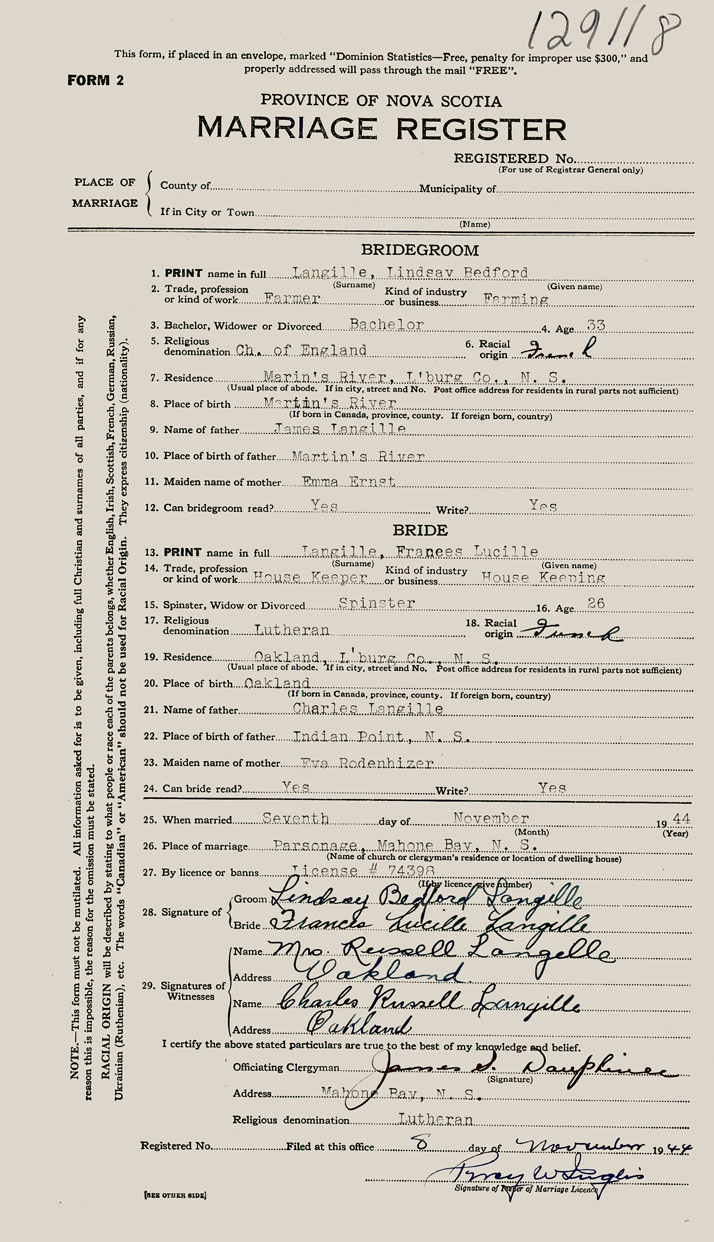 129118
This form, if placed in an envelope, marked "Dominion Statistics—Free, penalty for improper use $300," and
properly addressed will pass through the mail "FREE".
FORM 2
PROVINCE OF NOVA SCOTIA
MARRIAGE REGISTER
REGISTERED No.
(For use of Registrar General only)
PLACE OF MARRIAGE
County of Municipality of
If in City or Town
(Name)
BRIDEGROOM
1. PRINT name in full Langille, Lindsay Bedford
(Surname) (Given name)
2. Trade, profession or kind of work Farmer Kind of industry or business Farming
3. Bachelor, Widower or Divorced Bachelor 4. Age 33
5. Religious denomination Ch. of England 6. Racial origin French
7. Residence Marin's River, L'burg Co., N. S.
(Usual place of abode. If in city, street and No. Post office address for residents in rural parts not sufficient)
8. Place of birth Martin's River
(If born in Canada, province, county. If foreign born, country)
9. Name of father James Langille
10. Place of birth of father Martin's River
11. Maiden name of mother Emma Ernst
12. Can bridegroom read? Yes Write? Yes
BRIDE
13. PRINT name in full Langille, Frances Lucille
(Surname) (Given name)
14. Trade, profession or kind of work House Keeper Kind of industry or business House Keeping
15. Spinster, Widow or Divorced Spinster 16. Age 26
17. Religious denomination Lutheran 18. Racial origin French
19. Residence Oakland, L'burg Co., N. S.
(Usual place of abode. If in city, street and No. Post office address for residents in rural parts not sufficient)
20. Place of birth Oakland
(If born in Canada, province, county. If foreign born, country)
21. Name of father Charles Langille
22. Place of birth of father Indian Point, N. S.
23. Maiden name of mother Eva Rodenhizer
24. Can bride read? Yes Write? Yes
25. When married Seventh day of November 1944
(Month) (Year)
26. Place of marriage Parsonage, Mahone Bay, N. S.
(Name of church or clergyman's residence or location of dwelling house)
27. By licence or banns License # 74398
(If by licence give number)
28. Signature of
Groom Lindsay Bedford Langille
Bride Frances Lucille Langille
29. Signatures of Witnesses
Name Mrs. Russell Langille
Address Oakland
Name Charles Russell Langille
Address Oakland
I certify the above stated particulars are true to the best of my knowledge and belief.
Officiating Clergyman James S. Dauphinee
(Signature)
Address Mahone Bay, N. S.
Religious denomination Lutheran
Registered No. Filed at this office 8 day of November 1944
Percy W Inglis
Signature of Issuer of Marriage Licence
[SEE OTHER SIDE]
NOTE.—This form must not be mutilated. All information asked for is to be given, including full Christian and surnames of all parties, and if for any
reason this is impossible, the reason for the omission must be stated.
RACIAL ORIGIN will be described by stating to what people or race each of the parents belongs, whether English, Irish, Scottish, French, German, Russian,
Ukrainian (Ruthenian), etc. The words "Canadian" or "American" should not be used for Racial Origin. They express citizenship (nationality).